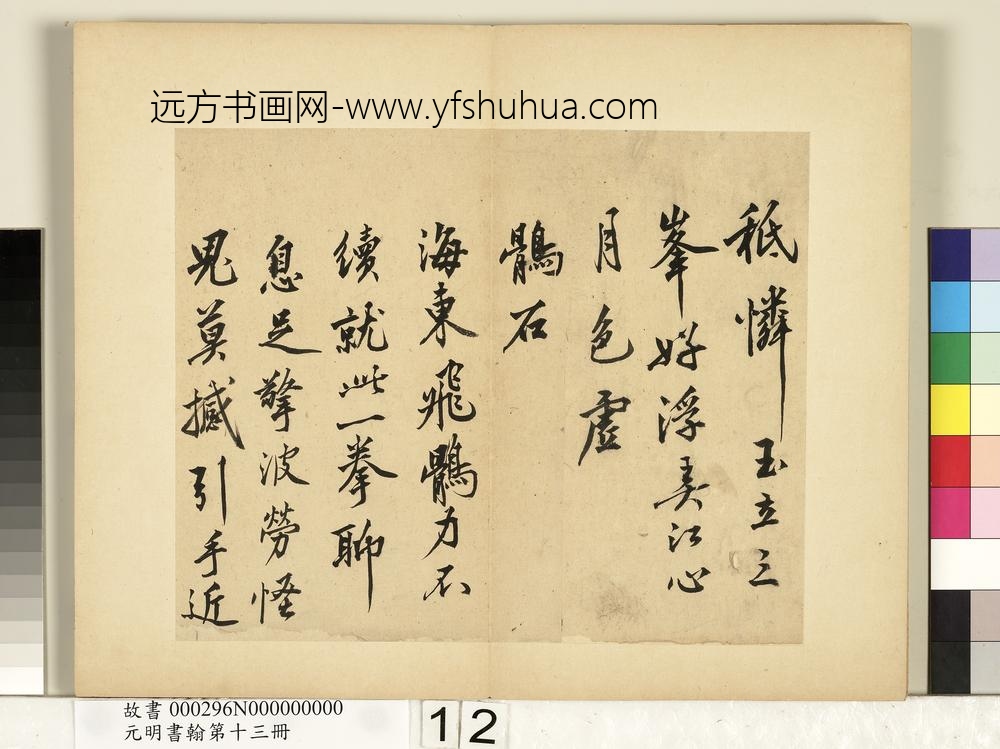 远方书画网-www.yfshuhua.com
秪憐玉立三
峯好浮弄江心
月色虛
鶻石
海東飛鶻力不
續就此一拳聊
息足擎波勞怪
鬼莫撼引手近
故書 000296N000000000
元明書翰第十三冊
12